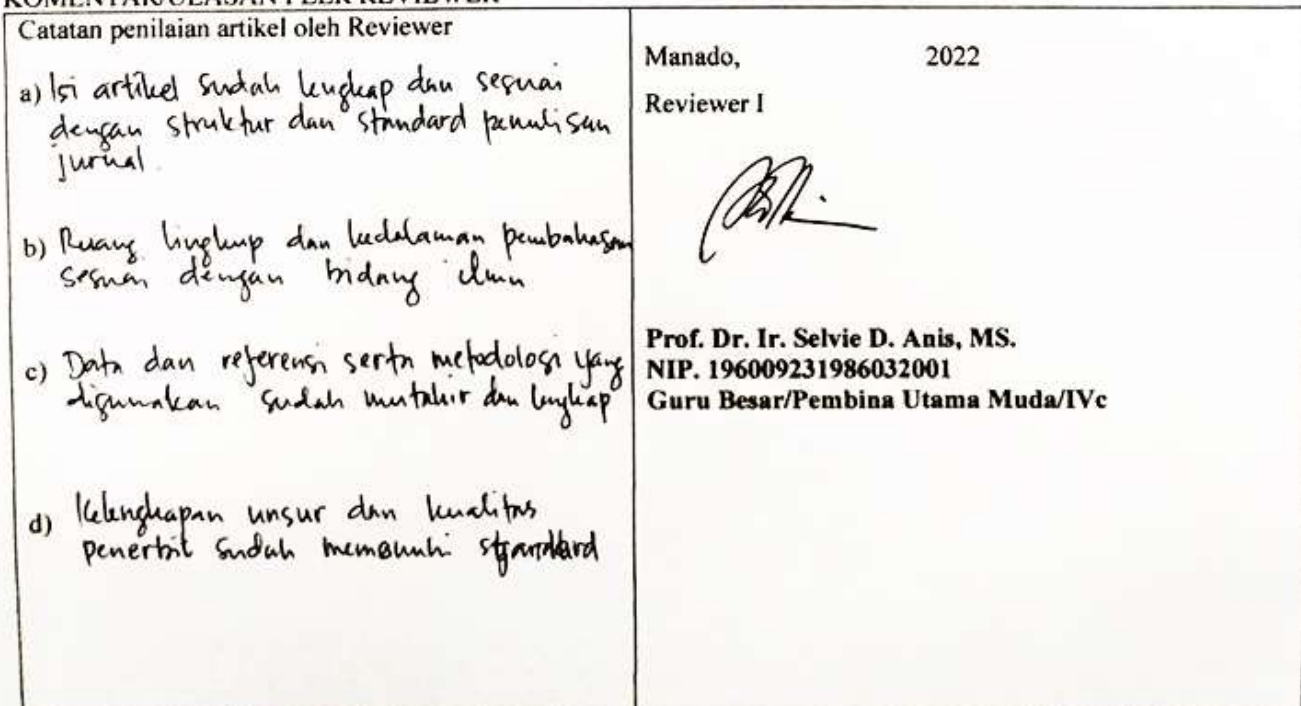 KOMENTAR/ULASAN PEER REVIEWER
Catatan penilaian artikel oleh Reviewer
a) Isi artikel sudah lengkap dan sesuai
dengan struktur dan standard penulisan
jurnal.
b) Ruang lingkup dan kedalaman pembahasan
sesuai dengan bidang ilmu
c) Data dan referensi serta metodologi yang
digunakan sudah mutahir dan lengkap
d) Kelengkapan unsur dan kualitas
penerbit sudah memenuhi standard
Manado, 2022
Reviewer I
Prof. Dr. Ir. Selvie D. Anis, MS.
NIP. 196009231986032001
Guru Besar/Pembina Utama Muda/IVc